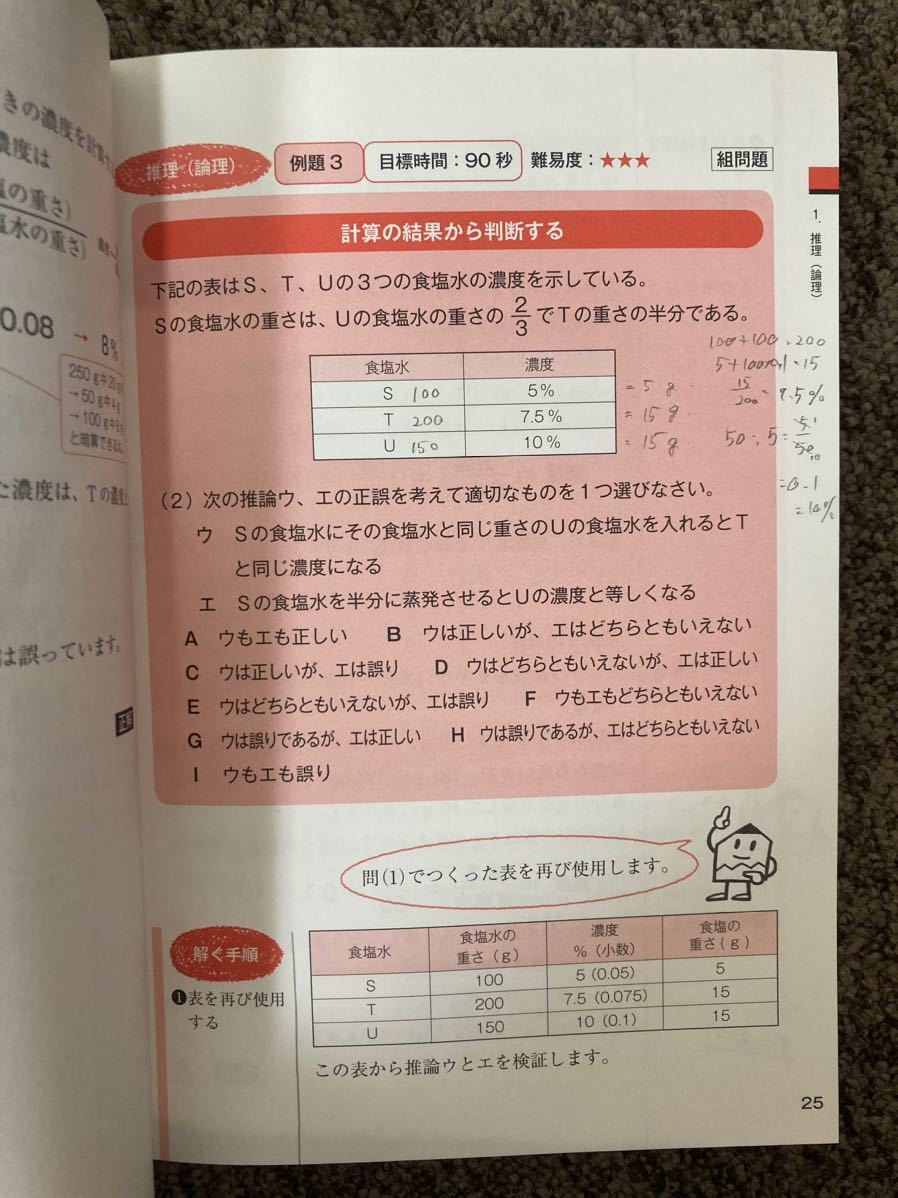 きの濃度を計算す
濃度は
塩の重さ)
塩水の重さ)
0.08 → 8%
250g中20g
→50g中4g
→100g中8g
と暗算できるね
た濃度は、Tの濃度
は誤っています。
正解
推理(論理) 例題3 目標時間:90秒 難易度:★★★ 組問題
1. 推理(論理)
計算の結果から判断する
下記の表はS、T、Uの3つの食塩水の濃度を示している。
Sの食塩水の重さは、Uの食塩水の重さの2/3でTの重さの半分である。
食塩水 濃度
S 100 5% = 5g
T 200 7.5% = 15g
U 150 10% = 15g
100+100=200
5+100×0.1=15
15/200=7.5%
50÷5=
=0.1
=10%
(2)次の推論ウ、エの正誤を考えて適切なものを1つ選びなさい。
ウ Sの食塩水にその食塩水と同じ重さのUの食塩水を入れるとT
と同じ濃度になる
エ Sの食塩水を半分に蒸発させるとUの濃度と等しくなる
A ウもエも正しい B ウは正しいが、エはどちらともいえない
C ウは正しいが、エは誤り D ウはどちらともいえないが、エは正しい
E ウはどちらともいえないが、エは誤り F ウもエもどちらともいえない
G ウは誤りであるが、エは正しい H ウは誤りであるが、エはどちらともいえない
I ウもエも誤り
問(1)でつくった表を再び使用します。
解く手順
❶表を再び使用
する
食塩水 食塩水の重さ(g) 濃度%(小数) 食塩の重さ(g)
S 100 5(0.05) 5
T 200 7.5(0.075) 15
U 150 10(0.1) 15
この表から推論ウとエを検証します。
25